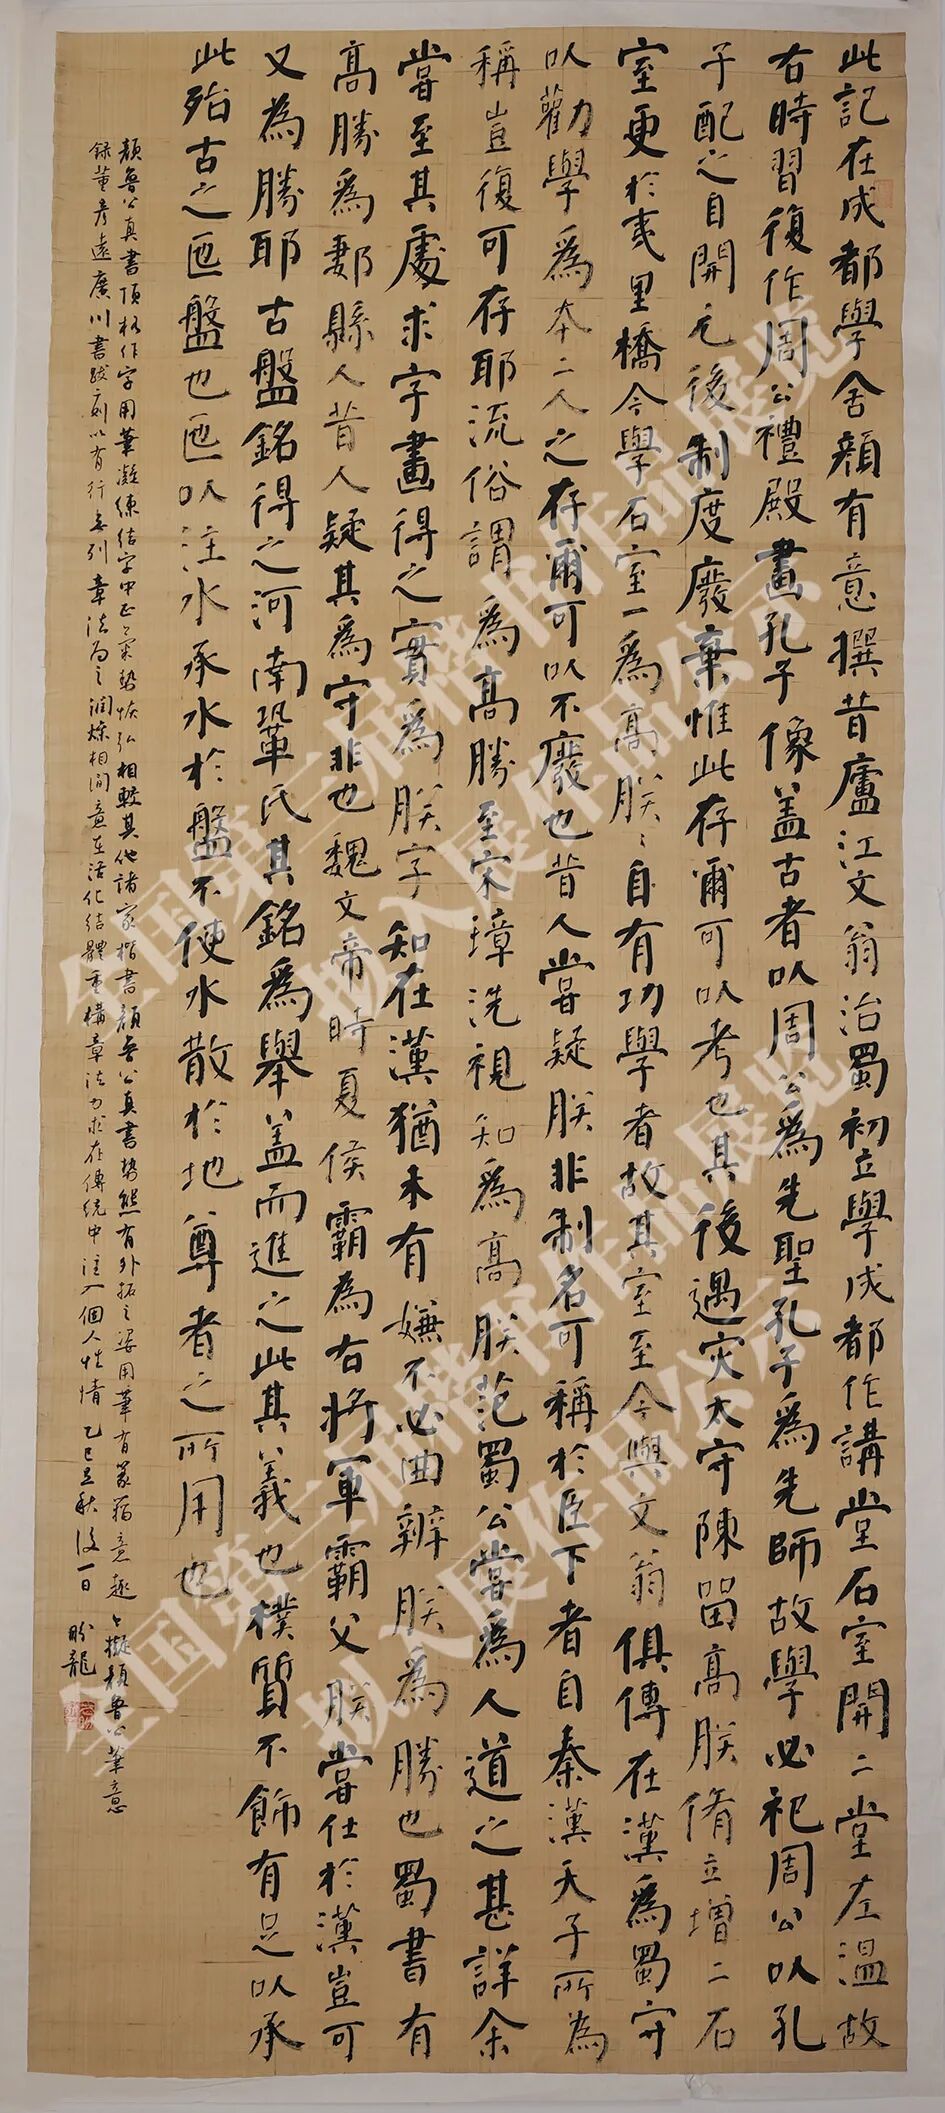 此記在成都學舍顏有意撰昔廬江文翁治蜀初立學成都作講堂石室開二堂左溫故
右時習復作周公禮殿畫孔子像蓋古者以周公為先聖孔子為先師故學必祀周公以孔
子配之自開元後制度廢棄惟此存爾可以考也其後遇灾太守陳留高朕脩立增二石
室更於夷里橋今學石室一為高朕〻自有功學者故其室至今與文翁俱傳在漢為蜀守
以勸學為本二人之存爾可以不廢也昔人嘗疑朕非制名可稱於臣下者自秦漢天子所為
稱豈復可存耶流俗謂為高勝至宋璋洗視知為高朕范蜀公嘗為人道之甚詳余
嘗至其處求字畫得之實為朕字知在漢猶未有嫌不必曲辨朕為勝也蜀書有
高勝為郪縣人昔人疑其為守非也魏文帝時夏侯霸為右將軍霸父朕嘗仕於漢豈可
又為勝耶古盤銘得之河南鞏氏其銘為舉蓋而進之此其義也樸質不飾有足以承
此殆古之匜盤也匜以注水承水於盤不使水散於地尊者之所用也
顏魯公真書頂格作字用筆凝練結字中正氣勢恢弘相較其他諸家楷書顏魯公真書勢態有外拓之姿用筆有篆籀意趣今擬顏魯公筆意
錄董彥遠廣川書跋刻以有行無列章法為之潤燥相間意在活化結體重構章法力求在傳統中注入個人性情乙巳立秋後一日
盼龍
全国第三届楷书作品展览
拟入展作品公示
全国第三届楷书作品展览
拟入展作品公示